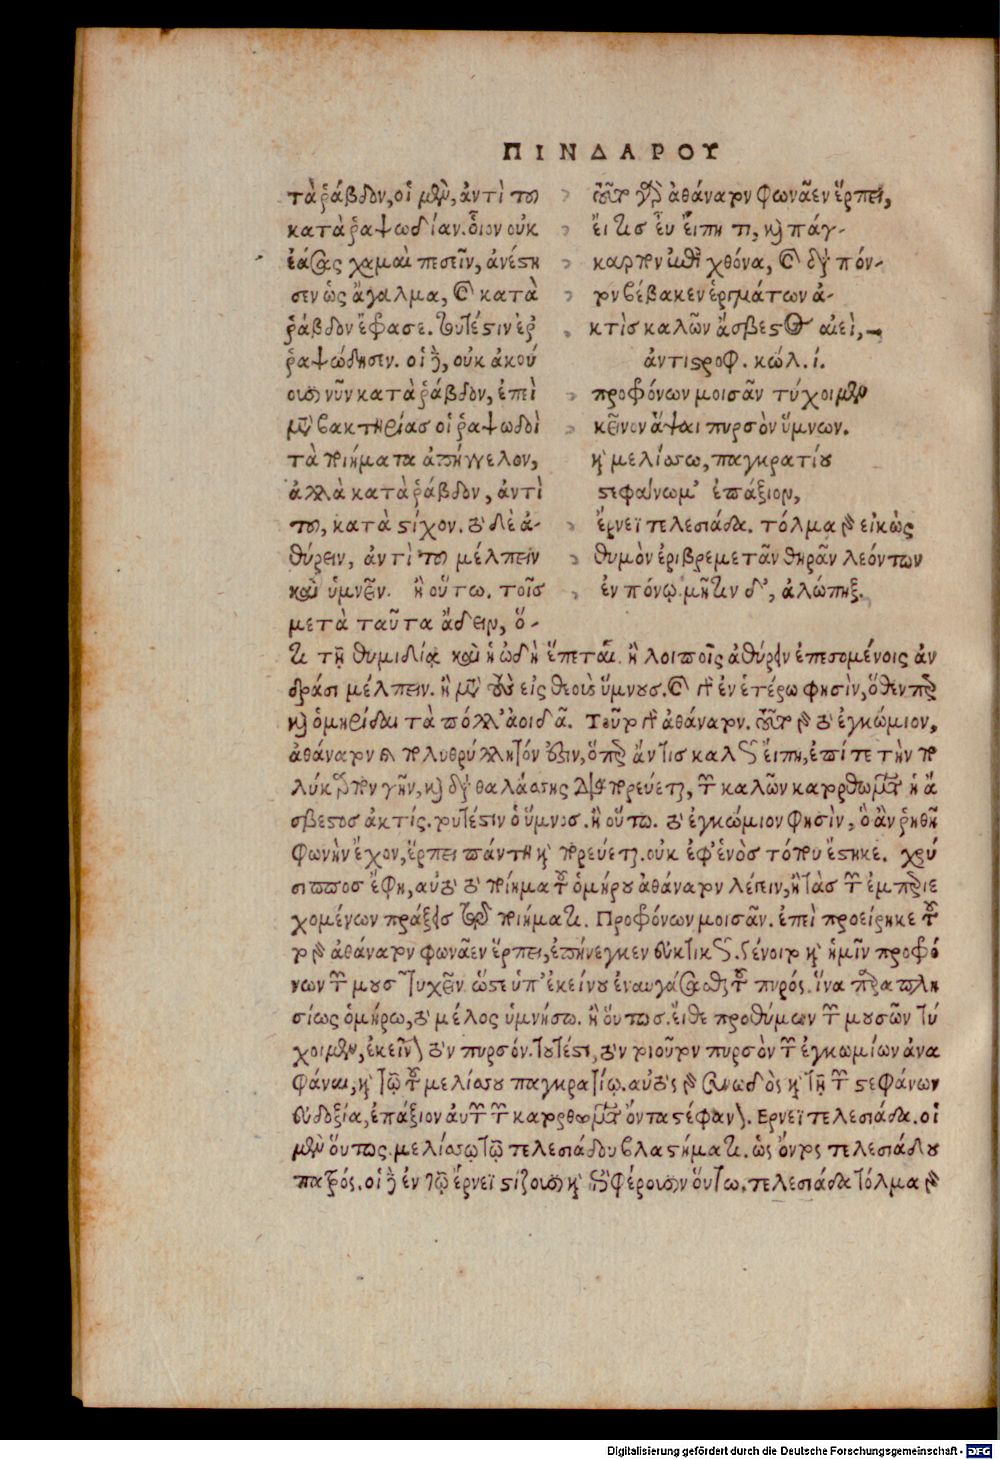 ΠΙΝΔΑΡΟΥ
τὰ ῥάβδον, οἱ μὲν, ἀντὶ τοῦ
κατὰ ῥαψωδίαν. οἷον οὐκ
ἐάσας χαμαὶ πεσεῖν, ἀνέστη
σεν ὡς ἄγαλμα, καὶ κατὰ
ῥάβδον ἔφασε. τουτέστιν ἐρ
ραψώδησεν. οἱ δὲ, οὐκ ἀκού
ουσι νῦν κατὰ ῥάβδον, ἐπεὶ
μετὰ βακτηρίας οἱ ῥαψωδοὶ
τὰ ποιήματα ἀπήγγελον,
ἀλλὰ κατὰ ῥάβδον, ἀντὶ
τοῦ, κατὰ στίχον. τὸ δὲ ἀ-
θύρειν, ἀντὶ τοῦ μέλπειν
καὶ ὑμνεῖν. ἢ οὕτω. τοῖς
μετὰ ταῦτα ἄδειν, ὅ-
τοῦτο γὰρ ἀθάνατον φωνᾶεν ἕρπει,
εἴ τις εὖ εἴπῃ τι, καὶ πάγ-
καρπον ἐπὶ χθόνα, καὶ διὰ πόν-
τον βέβακεν ἑργμάτων ἀ-
κτὶς καλῶν ἄσβεστος αἰεὶ,
ἀντιστροφ. κώλ. ί.
προφόνων μοισᾶν τύχοιμεν
κεῖνον ἅψαι πυρσὸν ὕμνων.
καὶ μελίσσω, παγκρατίου
στεφάνωμ' ἐπάξιον,
ἔρνεϊ τελεσιάδα. τόλμα γὰρ εἰκὼς
θυμὸν ἐριβρεμετᾶν θηρᾶν λεόντων
ἐν πόνῳ. μῆτιν δ', ἀλώπηξ.
τι τῇ θυμιδίᾳ καὶ ἡ ὠδὴ ἕπεται. ἢ λοιποῖς ἀθύρειν ἐπεσομένοις ἀν
δράσι μέλπειν. ἢ μετὰ τοὺς εἰς θεοὺς ὕμνους. καὶ γὰρ ἐν ἑτέρω φησὶν, ὅθεν περ
καὶ ὁμηρίδαι τὰ πόλλ' ἀοιδᾶ. Τοῦτο γὰρ ἀθάνατον. τοῦτο γὰρ τὸ ἐγκώμιον,
ἀθάνατον καὶ πολυθρύλλητόν ἐστιν, ὅπερ ἄν τις καλῶς εἴπῃ, ἐπί τε τὴν πο
λύκαρπον γῆν, καὶ διὰ θαλάσσης διαπορεύεται, τῶν καλῶν κατορθωμάτων ἡ ἄ
σβεστος ἀκτίς. τουτέστιν ὁ ὕμνος. ἢ οὕτω. τὸ ἐγκώμιον φησὶν, ὃ ἂν ῥηθῇ
φωνὴν ἔχον, ἕρπει πάντη καὶ πορεύεται. οὐκ ἐφ' ἑνὸς τόπου ἕστηκε. χρύ
σιππος ἔφη, αὐτὸ τὸ ποίημα τοῦ ὁμήρου ἀθάνατον λέγειν, ἢ τὰς τῶν ἐμπεριε
χομένων πράξεις τῷ ποιήματι. Προφόνων μοισᾶν. ἐπεὶ προείρηκε τοῦ
το γὰρ ἀθάνατον φωνᾶεν ἕρπει, ἐπήνεγκεν εὐκτικῶς. γένοιτο καὶ ἡμῖν προφό
νων τῶν μουσῶν τυχεῖν. ὥστε ὑπ' ἐκείνου ἐναυγάσασθαι τοῦ πυρός. ἵνα παραπλη
σίως ὁμήρω, τὸ μέλος ὑμνήσω. ἢ οὕτως. εἴθε προθύμων τῶν μουσῶν τύ
χοιμεν, ἐκεῖνον τὸν πυρσόν. τουτέστι, τὸν τοιοῦτον πυρσὸν τῶν ἐγκωμίων ἀνα
φάναι, καὶ τῷ τοῦ μελίσσου παγκρατίῳ. αὐτὸς γὰρ συνωδὸς καὶ τῇ τῶν στεφάνων
εὐδοξία, ἐπάξιον αὐτῶν τῶν κατορθωμάτων ὄντα στέφανον. Ερνεϊ τελεσιάδα. οἱ
μὲν οὕτως. μελίσσῳ τῷ τελεσιάδου βλαστήματι. ὡς ὄντος τελεσιάδου
πατρός. οἱ δὲ ἐν τῷ ἔρνεϊ στίζουσι καὶ προσφέρουσιν οὕτω. τελεσιάδα τόλμα γὰρ
Digitalisierung gefördert durch die Deutsche Forschungsgemeinschaft - DFG